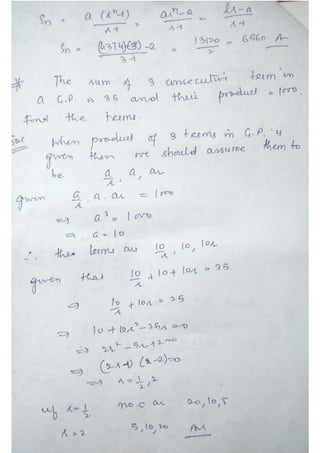 Sn = a (rⁿ-1) / r-1 = arⁿ-a / r-1 = lr-a / r-1
Sn = (4374)(3)-2 / 3-1 = 13120 / 2 = 6560 A
# The sum of 3 consecutive term in
a G.P. is 35 and their product = 1000.
find the terms.
Sol When product of 3 terms in G.P. is
given then we should assume them to
be a/r, a, ar
given a/r . a . ar = 1000
⇒ a³ = 1000
⇒ a = 10
∴ the terms are 10/r, 10, 10r
given that 10/r + 10 + 10r = 35
⇒ 10/r + 10r = 25
⇒ 10 + 10r² - 25r = 0
⇒ 2r² - 5r + 2 = 0
⇒ (2r-1) (r-2) = 0
⇒ r = 1/2, 2
if r = 1/2 no.s are 20, 10, 5
r = 2 5, 10, 20 Ans